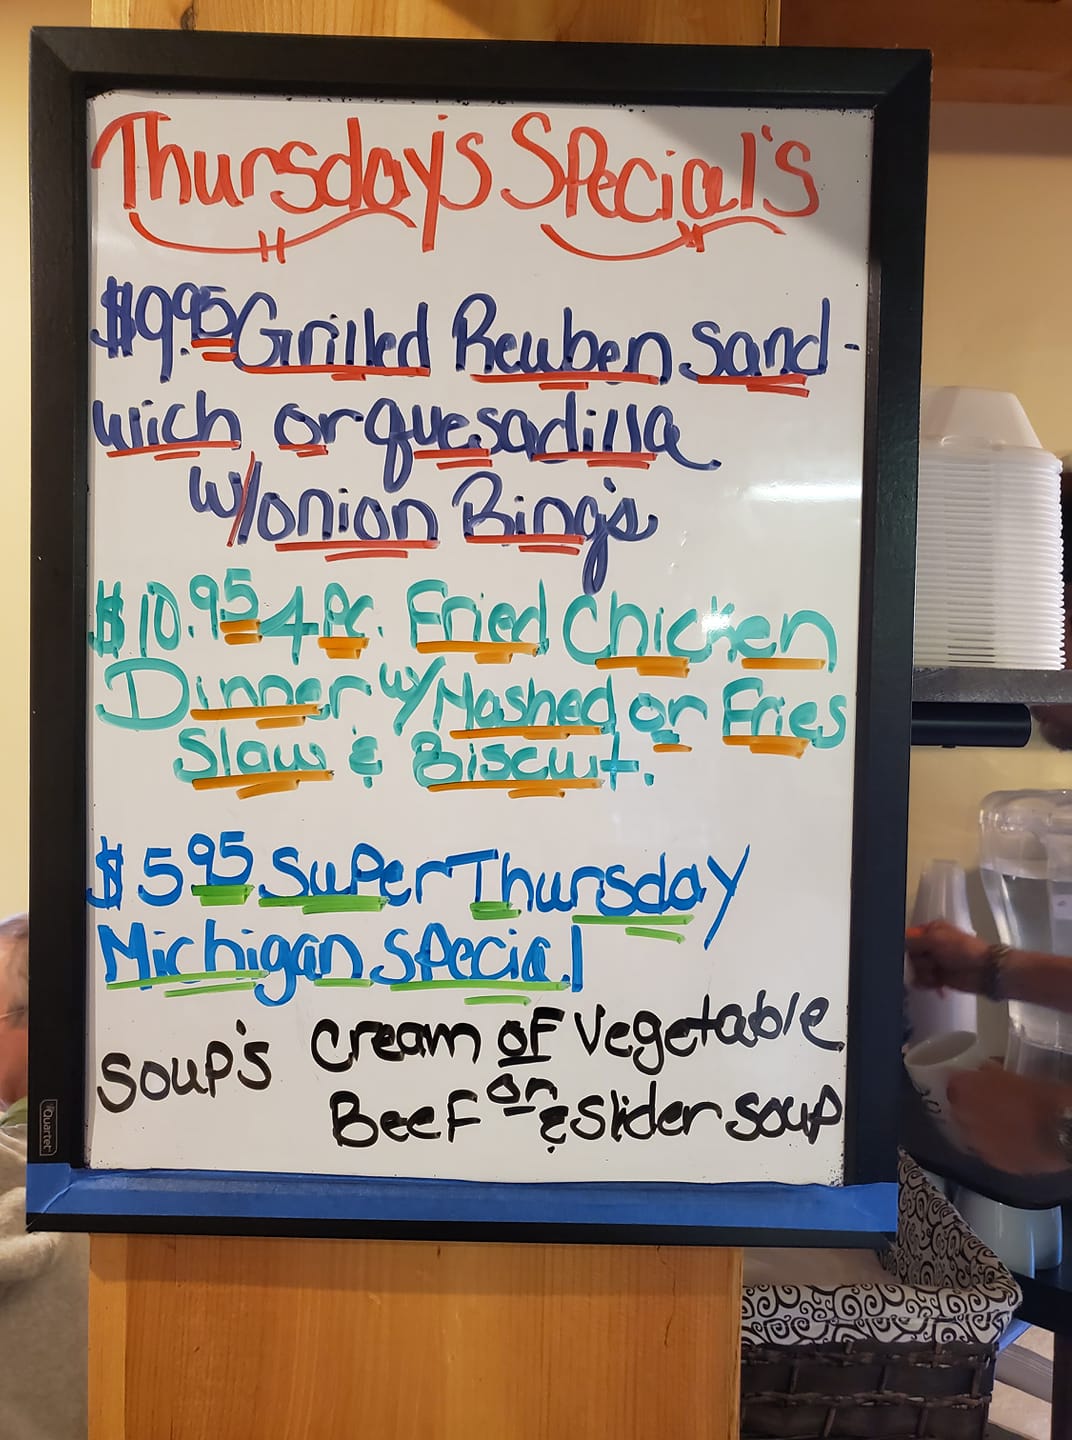 Thursday's Special's
$9.95 Grilled Reuben Sand-
wich or quesadilla
w/onion Ring's
$10.95 4 Pc. Fried Chicken
Dinner w/Mashed or Fries
Slaw & Biscuit.
$5.95 Super Thursday
Michigan Special
Soup's Cream of Vegetable
Beef or & Slider soup
Quartet